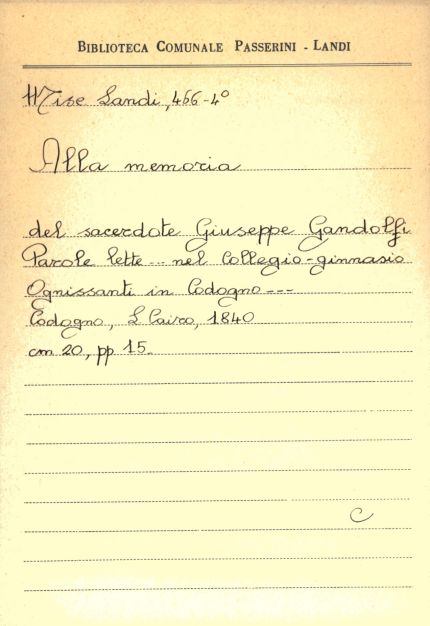 BIBLIOTECA COMUNALE PASSERINI - LANDI
Misc Landi, 466-4º
Alla memoria
del sacerdote Giuseppe Gandolfi
Parole lette... nel Collegio-ginnasio
Ognissanti in Codogno---
Codogno, L. Cairo, 1840
cm 20, pp 15.
C